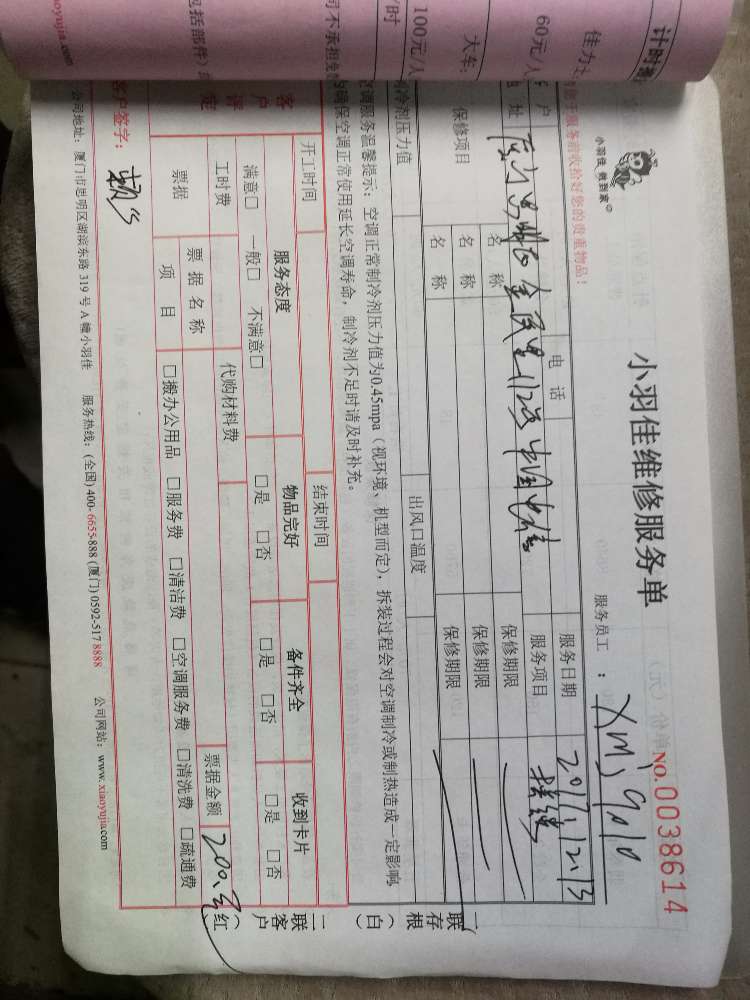 计时
佳力
60元/人
大车:
100元/人
/时
司不承担免
包括部件)
aoyujia.com
小羽佳 收到家
小羽佳维修服务单
NO.0038614
服务员工:
服务前收拾好您的贵重物品!
户
电 话
服务日期
2017.12.13
址
服务项目
保修项目
名 称
保修期限
名 称
保修期限
名 称
保修期限
制冷剂压力值
出风口温度
空调服务温馨提示: 空调正常制冷剂压力值为0.45mpa (视环境、机型而定), 拆装过程会对空调制冷或制热造成一定影响
确保空调正常使用延长空调寿命, 制冷剂不足时请及时补充。
一联存根(白)
二联客户(红)
开工时间
结束时间
客户评定
服务态度
物品完好
备件齐全
收到卡片
满意□ 一般□ 不满意□
□是 □否
□是 □否
□是 □否
工时费
代购材料费
票据金额
200.元
票据
票据名称
项 目
□搬办公用品 □服务费 □清洁费 □空调服务费 □清洗费 □疏通费
客户签字:
公司地址: 厦门市思明区湖滨东路 319 号 A 幢小羽佳 服务热线: (全国) 400-6655-888 (厦门) 0592-5178888 公司网站: www.xiaoyujia.com